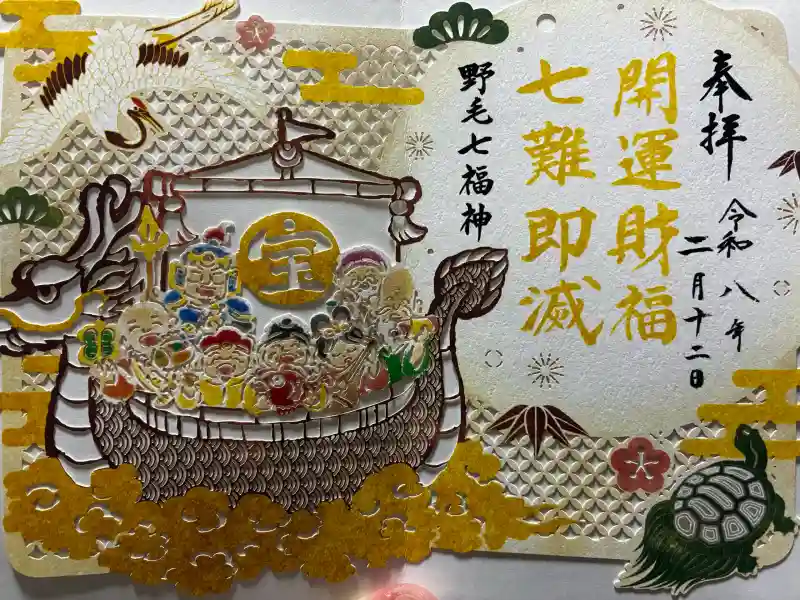 奉拝
令和八年
二月十二日
開運財福
七難即滅
野毛七福神
宝